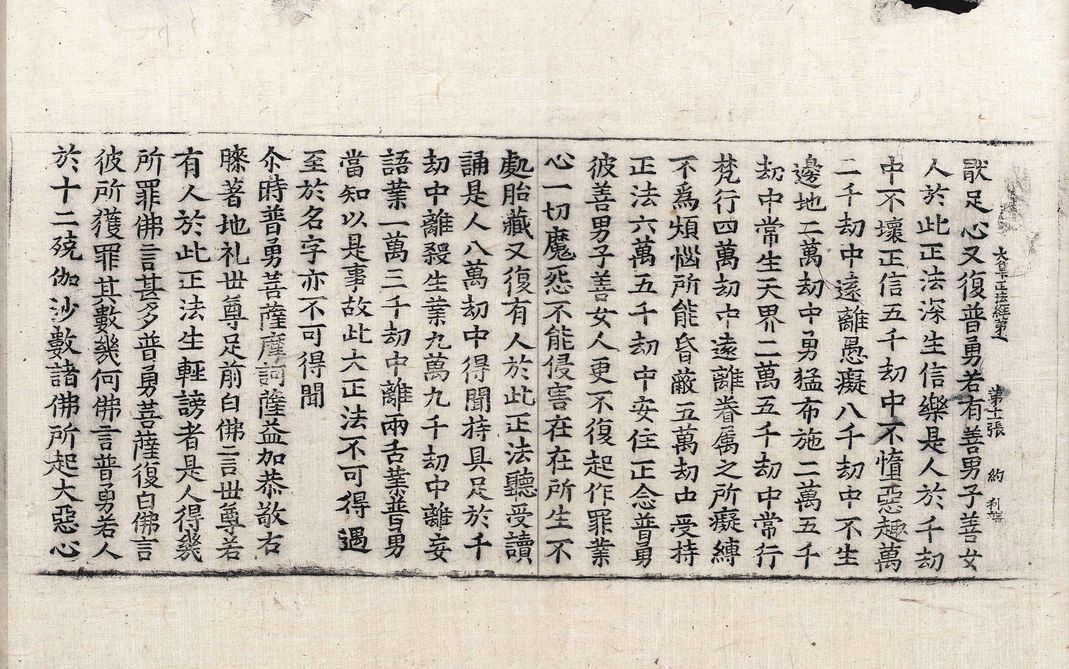 猒足心又復普勇若有善男子善女
大集正法經第一 第十張 約
人於此正法深生信樂是人於千劫
中不壞正信五千劫中不憤惡趣萬
二千劫中遠離愚癡八千劫中不生
邊地二萬劫中勇猛布施二萬五千
劫中常生天界二萬五千劫中常行
梵行四萬劫中遠離眷属之所癡縛
不爲煩惱所能昏蔽五萬劫中受持
正法六萬五千劫中安住正念普勇
彼善男子善女人更不復起作罪業
心一切魔㤪不能侵害在在所生不
處胎藏又復有人於此正法聽受讀
誦是人八萬劫中得聞持具足於千
劫中離殺生業九萬九千劫中離妄
語業一萬三千劫中離兩舌業普勇
當知以是事故此大正法不可得遇
至於名字亦不可得聞
尒時普勇菩薩摩訶薩益加恭敬右
膝著地礼世尊足前白佛言世尊若
有人於此正法生輕謗者是人得幾
所罪佛言甚多普勇菩薩復白佛言
彼所獲罪其數幾何佛言普勇若人
於十二殑伽沙數諸佛所起大惡心